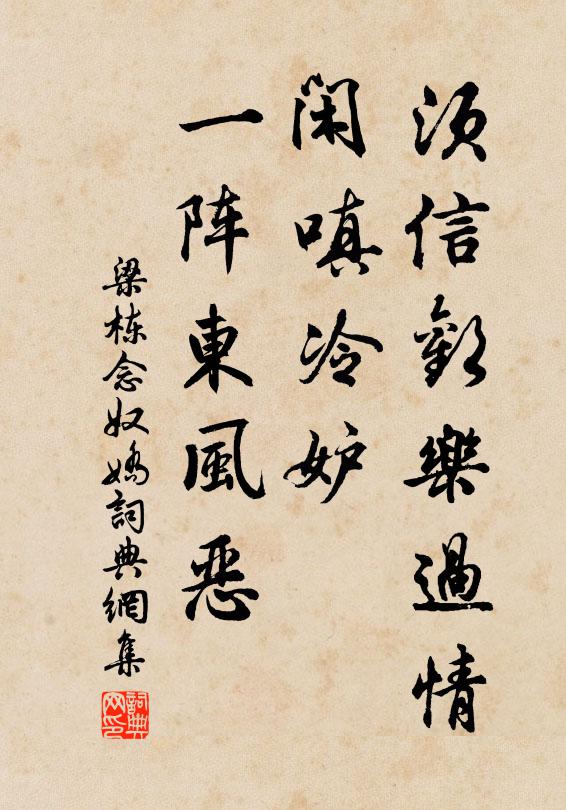 须信歡樂過情
闲嗔冷妒
一阵東風惡
梁栋念奴嬌詞典網集
詞典网印